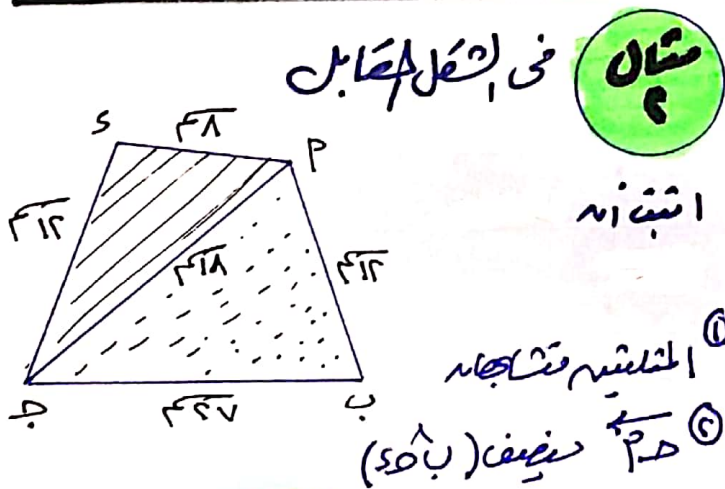 مثال ٢
فى الشكل المقابل
اثبت أن
① المثلثين متشابهان
② جـ أ ينصف (ب جـ د)
د
٨ سم
أ
١٢ سم
١٨ سم
١٢ سم
جـ
٢٧ سم
ب